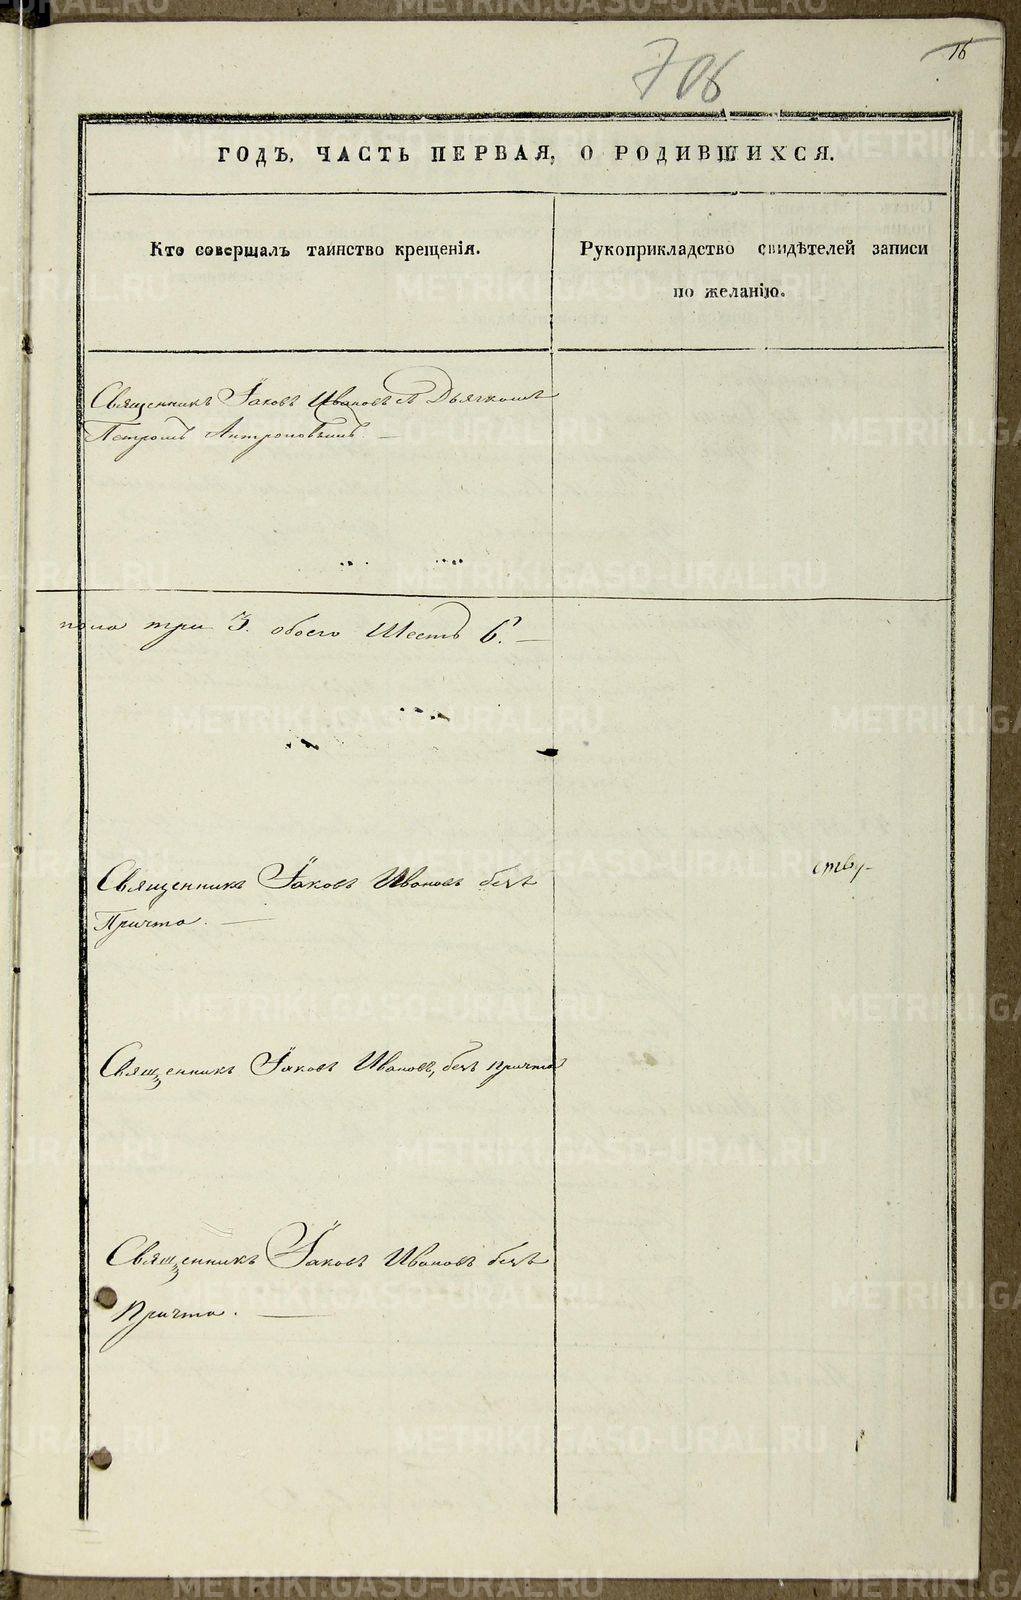 706
16
ГОДЪ, ЧАСТЬ ПЕРВАЯ, О РОДИВШИХСЯ.
Кто совершалъ таинство крещенія.
Рукоприкладство свидѣтелей записи
по желанію.
Священникъ Іаковъ Ивановъ съ Дьячкомъ
Петромъ Антроповымъ. —
пола три 3. обоего Шесть 6. —
Священникъ Іаковъ Ивановъ безъ
Причта. —
Священникъ Іаковъ Ивановъ, безъ причта
Священникъ Іаковъ Ивановъ безъ
Причта. —
METRIKI.GASO-URAL.RU